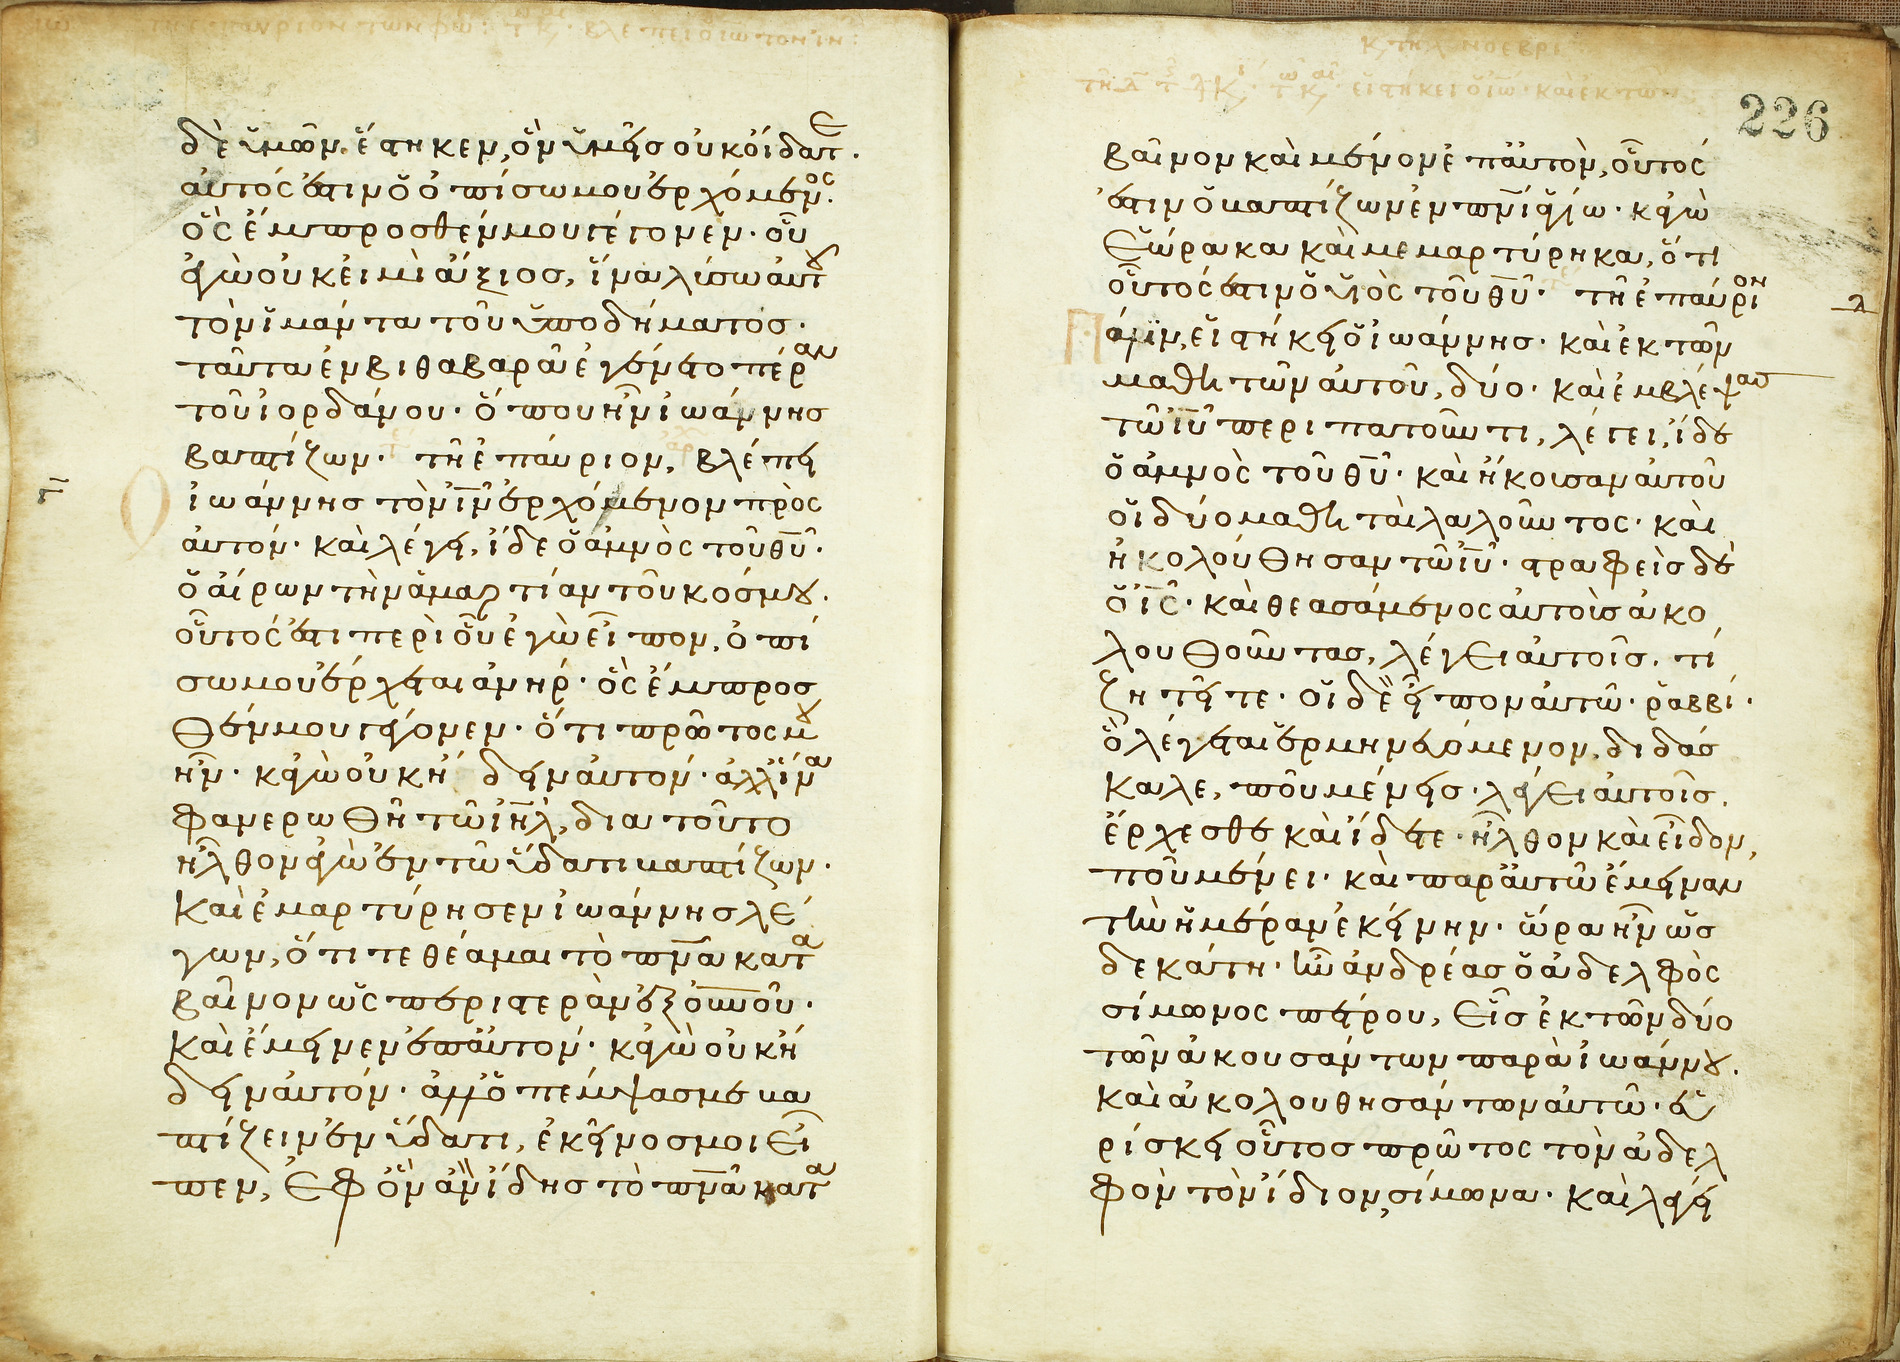 τῆ ἐπαύριον τῶν φώ: βλέπει ὁ ἰω τὸν ἰν:
δὲ ὑμῶν ἕστηκεν, ὃν ὑμεῖς οὐκ οἴδατε.
αὐτός ἐστιν ὁ ὀπίσω μου ἐρχόμενος.
ὃς ἔμπροσθέν μου γέγονεν· οὗ
ἐγὼ οὐκ εἰμὶ ἄξιος, ἵνα λύσω αὐτοῦ
τὸν ἱμάντα τοῦ ὑποδήματος.
ταῦτα ἐν βιθαβαρᾶ ἐγένετο πέραν
τοῦ ἰορδάνου· ὅπου ἦν ἰωάννης
βαπτίζων· τῆ ἐπαύριον, βλέπει
ἰωάννης τὸν ἰν ἐρχόμενον πρὸς
αὐτόν· καὶ λέγει, ἴδε ὁ ἀμνὸς τοῦ θυ·
ὁ αἴρων τὴν ἁμαρτίαν τοῦ κόσμου.
οὗτός ἐστι περὶ οὗ ἐγὼ εἶπον, ὀπί
σω μου ἔρχεται ἀνήρ· ὃς ἔμπροσ
θέν μου γέγονεν· ὅτι πρῶτός μου
ἦν· κἀγὼ οὐκ ἤδειν αὐτόν· ἀλλ' ἵνα
φανερωθῆ τῶ ἰηλ, διὰ τοῦτο
ἦλθον ἐγὼ ἐν τῶ ὕδατι βαπτίζων.
Καὶ ἐμαρτύρησεν ἰωάννης λέ
γων, ὅτι τεθέαμαι τὸ πνα κατα
βαῖνον ὡς περιστερὰν ἐξ οὐνοῦ.
καὶ ἔμεινεν ἐπ' αὐτόν· κἀγὼ οὐκ ἤ
δειν αὐτόν· ἀλλ' ὁ πέμψας με βα
πτίζειν ἐν ὕδατι, ἐκεῖνός μοι εἶ
πεν, ἐφ' ὃν ἂν ἴδης τὸ πνα κατα
εἱστήκει ὁ ἰω· καὶ ἐκ τῶν
226
βαῖνον καὶ μένον ἐπ' αὐτὸν, οὗτός
ἐστιν ὁ βαπτίζων ἐν πνι ἁγίω· κἀγὼ
ἑώρακα καὶ μεμαρτύρηκα, ὅτι
οὗτός ἐστιν ὁ υἱὸς τοῦ θυ· τῆ ἐπαύριον
λ
Πάλιν, εἱστήκει ὁ ἰωάννης· καὶ ἐκ τῶν
μαθητῶν αὐτοῦ, δύο· καὶ ἐμβλέψας
τῶ ἰυ περιπατοῦντι, λέγει, ἴδε
ὁ ἀμνὸς τοῦ θυ· καὶ ἤκουσαν αὐτοῦ
οἱ δύο μαθηταὶ λαλοῦντος· καὶ
ἠκολούθησαν τῶ ἰυ· στραφεὶς δὲ
ὁ ἰς· καὶ θεασάμενος αὐτοὺς ἀκο
λουθοῦντας, λέγει αὐτοῖς. τί
ζητεῖτε· οἱ δὲ εἶπον αὐτῶ· ῥαββί·
ὃ λέγεται ἑρμηνευόμενον, διδάσ
καλε, ποῦ μένεις· λέγει αὐτοῖς.
ἔρχεσθε καὶ ἴδετε· ἦλθον καὶ εἶδον,
ποῦ μένει· καὶ παρ' αὐτῶ ἔμειναν
τὴν ἡμέραν ἐκείνην· ὥρα ἦν ὡς
δεκάτη· ἦν ἀνδρέας ὁ ἀδελφὸς
σίμωνος πέτρου, εἷς ἐκ τῶν δύο
τῶν ἀκουσάντων παρὰ ἰωάννου.
καὶ ἀκολουθησάντων αὐτῶ· εὑ
ρίσκει οὗτος πρῶτος τὸν ἀδελ
φὸν τὸν ἴδιον, σίμωνα· καὶ λέγει